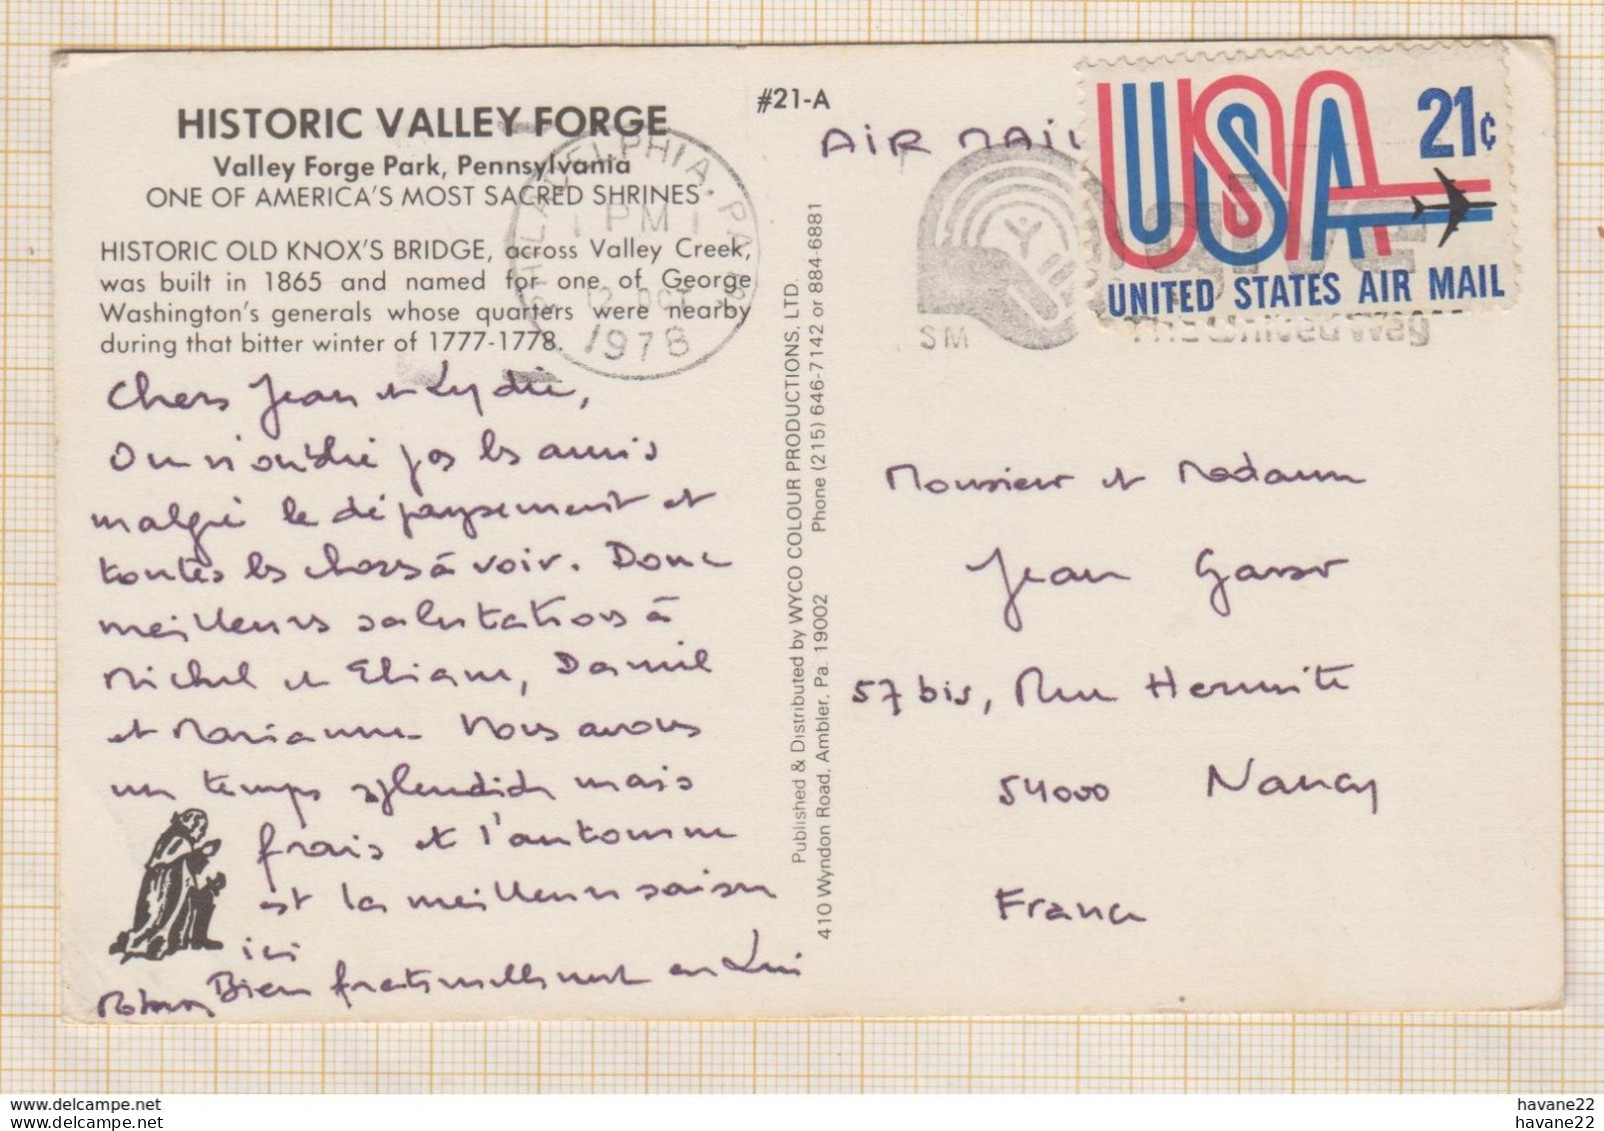 HISTORIC VALLEY FORGE
Valley Forge Park, Pennsylvania
ONE OF AMERICA'S MOST SACRED SHRINES
HISTORIC OLD KNOX'S BRIDGE, across Valley Creek,
was built in 1865 and named for one of George
Washington's generals whose quarters were nearby
during that bitter winter of 1777-1778.
Chers Jean et Lydie,
On n'oublie pas les amis
malgré le dépaysement et
toutes les choses à voir. Donc
meilleures salutations à
Michel et Eliane, Daniel
et Marianne. Nous avons
un temps splendide mais
frais et l'automne
est la meilleure saison
ici
Bien fraternellement en Lui
#21-A
Published & Distributed by WYCO COLOUR PRODUCTIONS, LTD.
410 Wyndon Road, Ambler, Pa. 19002 Phone (215) 646-7142 or 884-6881
AIR MAIL
PHILADELPHIA, PA
PM
12 OCT
1978
USA
21¢
UNITED STATES AIR MAIL
GIVE
The United Way
SM
Monsieur et Madame
Jean
57 bis, Rue Hermite
54000 Nancy
France
havane22
havane22
havane22
havane22